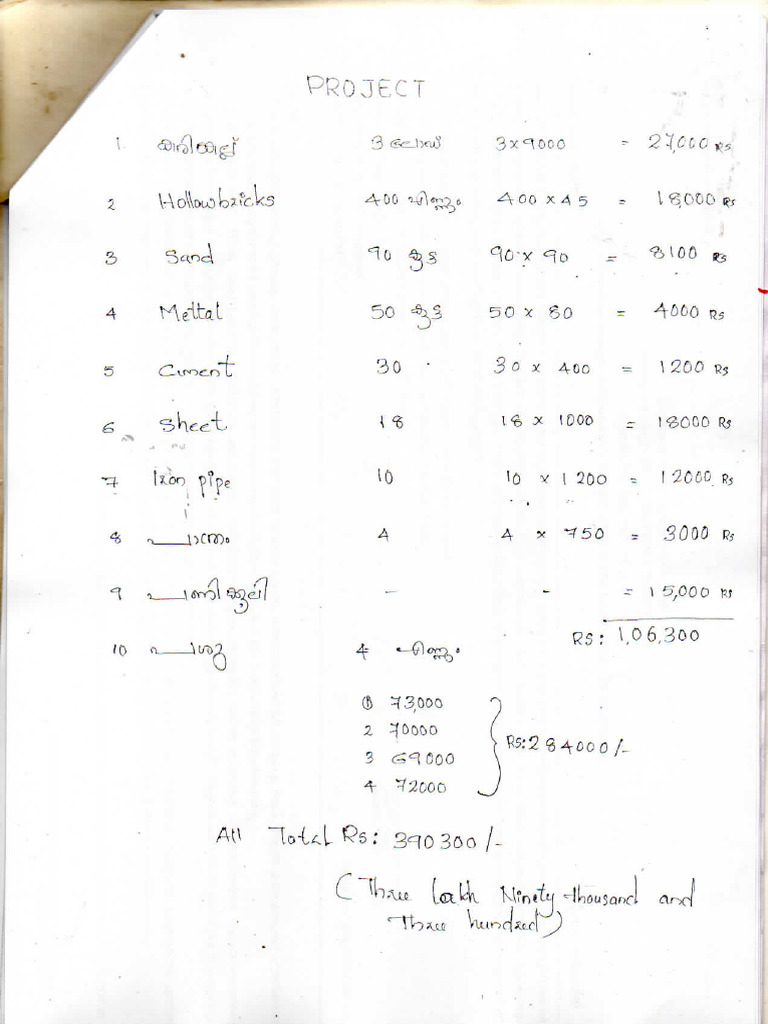 PROJECT
1 കരിങ്കല്ല് 3 ലോഡ് 3 × 9000 = 27,000 Rs
2 Hollowbricks 400 എണ്ണം 400 × 45 = 18,000 Rs
3 Sand 90 കുട്ട 90 × 90 = 8100 Rs
4 Mettal 50 കുട്ട 50 × 80 = 4000 Rs
5 Ciment 30 30 × 400 = 1200 Rs
6 Sheet 18 18 × 1000 = 18000 Rs
7 Iron pipe 10 10 × 1200 = 12000 Rs
8 പാത്രം 4 4 × 750 = 3000 Rs
9 പണിക്കൂലി - - = 15,000 Rs
RS: 1,06,300
10 പശു 4 എണ്ണം
1 73,000
2 70000
3 69000
4 72000
RS: 284000/-
All Total Rs: 390300/-
(Three lakh Ninety thousand and
Three hundred)